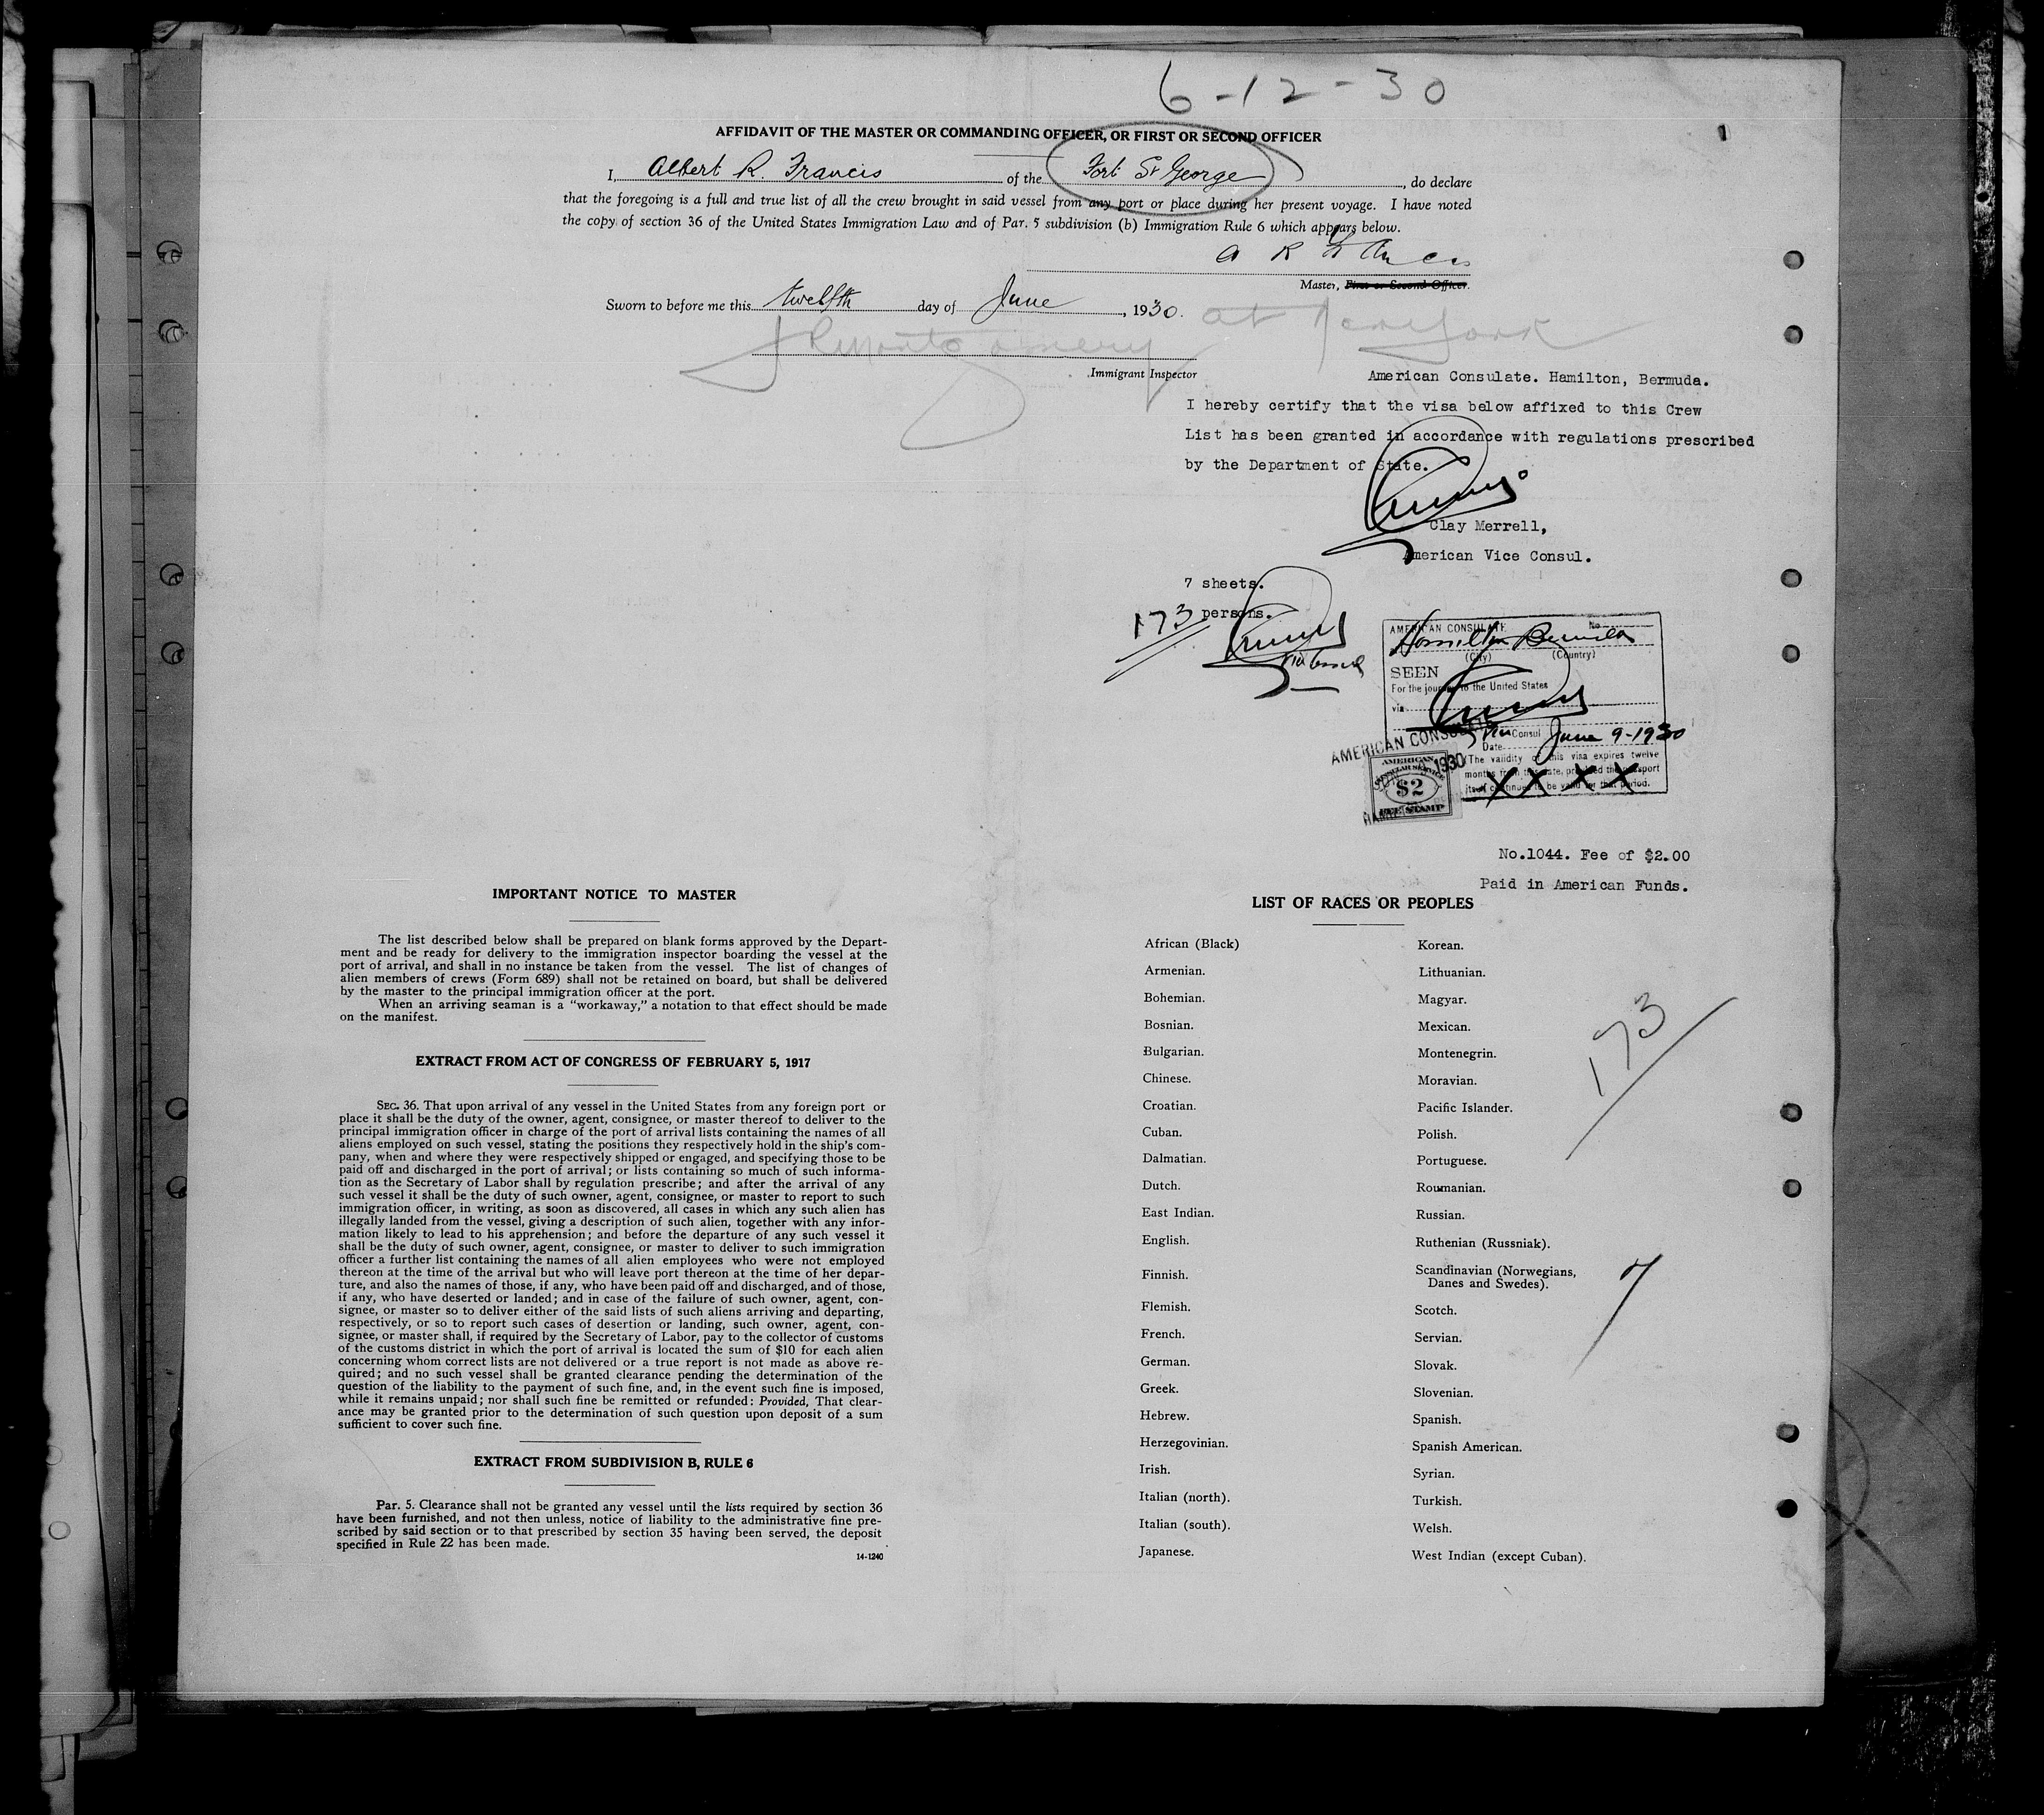 6-12-30
AFFIDAVIT OF THE MASTER OR COMMANDING OFFICER, OR FIRST OR SECOND OFFICER
1
I, Albert R. Francis of the Fort St George, do declare
that the foregoing is a full and true list of all the crew brought in said vessel from any port or place during her present voyage. I have noted
the copy of section 36 of the United States Immigration Law and of Par. 5 subdivision (b) Immigration Rule 6 which appears below.
A R Francis
Master, First or Second Officer.
Sworn to before me this twelfth day of June, 1930. at New York
Montgomery
Immigrant Inspector
American Consulate. Hamilton, Bermuda.
I hereby certify that the visa below affixed to this Crew
List has been granted in accordance with regulations prescribed
by the Department of State.
Clay Merrell,
American Vice Consul.
7 sheets.
173 persons.
AMERICAN CONSULATE No
Hamilton Bermuda
(City) (Country)
SEEN
For the journey to the United States
via
Consul
Date June 9-1930
The validity of this visa expires twelve
months from this date, provided the passport
itself continues to be valid for that period.
XXXX
AMERICAN CONSULATE
1930
AMERICAN
CONSULAR SERVICE
$2
FEE STAMP
No.1044. Fee of $2.00
Paid in American Funds.
IMPORTANT NOTICE TO MASTER
The list described below shall be prepared on blank forms approved by the Depart-
ment and be ready for delivery to the immigration inspector boarding the vessel at the
port of arrival, and shall in no instance be taken from the vessel. The list of changes of
alien members of crews (Form 689) shall not be retained on board, but shall be delivered
by the master to the principal immigration officer at the port.
When an arriving seaman is a "workaway," a notation to that effect should be made
on the manifest.
EXTRACT FROM ACT OF CONGRESS OF FEBRUARY 5, 1917
SEC. 36. That upon arrival of any vessel in the United States from any foreign port or
place it shall be the duty of the owner, agent, consignee, or master thereof to deliver to the
principal immigration officer in charge of the port of arrival lists containing the names of all
aliens employed on such vessel, stating the positions they respectively hold in the ship's com-
pany, when and where they were respectively shipped or engaged, and specifying those to be
paid off and discharged in the port of arrival; or lists containing so much of such informa-
tion as the Secretary of Labor shall by regulation prescribe; and after the arrival of any
such vessel it shall be the duty of such owner, agent, consignee, or master to report to such
immigration officer, in writing, as soon as discovered, all cases in which any such alien has
illegally landed from the vessel, giving a description of such alien, together with any infor-
mation likely to lead to his apprehension; and before the departure of any such vessel it
shall be the duty of such owner, agent, consignee, or master to deliver to such immigration
officer a further list containing the names of all alien employees who were not employed
thereon at the time of the arrival but who will leave port thereon at the time of her depar-
ture, and also the names of those, if any, who have been paid off and discharged, and of those,
if any, who have deserted or landed; and in case of the failure of such owner, agent, con-
signee, or master so to deliver either of the said lists of such aliens arriving and departing,
respectively, or so to report such cases of desertion or landing, such owner, agent, con-
signee, or master shall, if required by the Secretary of Labor, pay to the collector of customs
of the customs district in which the port of arrival is located the sum of $10 for each alien
concerning whom correct lists are not delivered or a true report is not made as above re-
quired; and no such vessel shall be granted clearance pending the determination of the
question of the liability to the payment of such fine, and, in the event such fine is imposed,
while it remains unpaid; nor shall such fine be remitted or refunded: Provided, That clear-
ance may be granted prior to the determination of such question upon deposit of a sum
sufficient to cover such fine.
EXTRACT FROM SUBDIVISION B, RULE 6
Par. 5. Clearance shall not be granted any vessel until the lists required by section 36
have been furnished, and not then unless, notice of liability to the administrative fine pre-
scribed by said section or to that prescribed by section 35 having been served, the deposit
specified in Rule 22 has been made.
14-1240
LIST OF RACES OR PEOPLES
African (Black)
Armenian.
Bohemian.
Bosnian.
Bulgarian.
Chinese.
Croatian.
Cuban.
Dalmatian.
Dutch.
East Indian.
English.
Finnish.
Flemish.
French.
German.
Greek.
Hebrew.
Herzegovinian.
Irish.
Italian (north).
Italian (south).
Japanese.
Korean.
Lithuanian.
Magyar.
Mexican.
Montenegrin.
Moravian.
Pacific Islander.
Polish.
Portuguese.
Roumanian.
Russian.
Ruthenian (Russniak).
Scandinavian (Norwegians,
Danes and Swedes).
Scotch.
Servian.
Slovak.
Slovenian.
Spanish.
Spanish American.
Syrian.
Turkish.
Welsh.
West Indian (except Cuban).
173
7